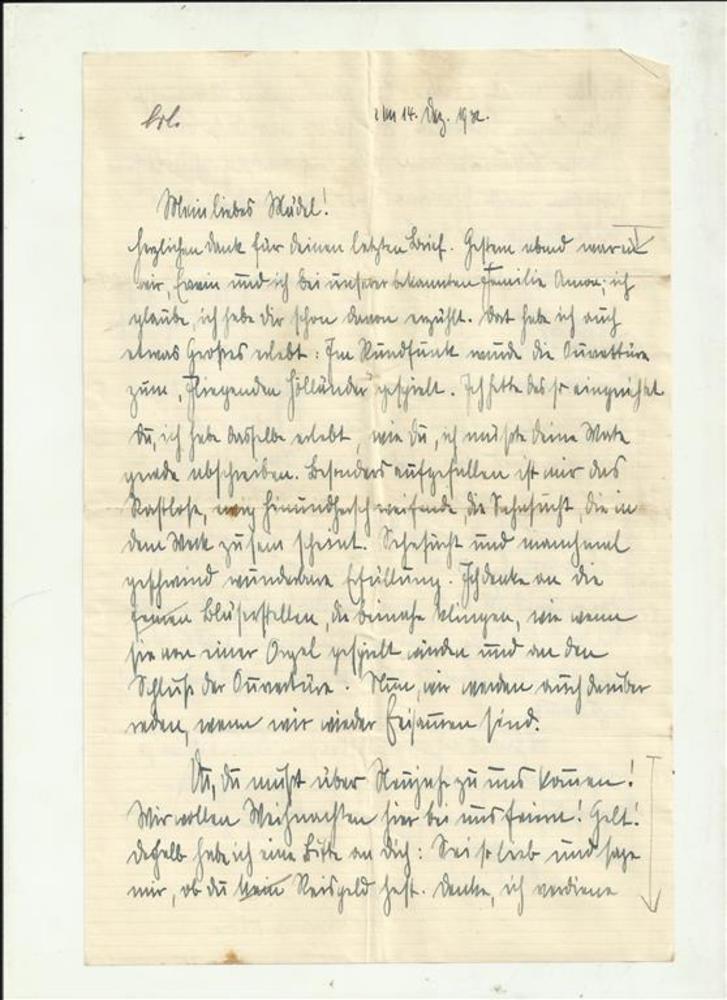 Ulm 14. Dez. 1932.
Mein liebes Mädel!
Herzlichen Dank für deinen letzten Brief. Gestern abend waren
wir, Erwin und ich bei unserer bekannten Familie; ich
glaube, ich habe dir schon davon erzählt. Dort habe ich auch
etwas Großes erlebt: Im Rundfunk wurde die Ouvertüre
zum „Fliegenden Holländer" gespielt. Ich hatte das so eingerichtet.
Du, ich habe dasselbe erlebt, wie du, ich müßte deine Worte
gerade abschreiben. Besonders aufgefallen ist mir das
Rastlose, hinundherschweifende, die Sehnsucht, die in
dem Werk zu sein scheint. Sehnsucht und manchmal
geschwind wunderbare Erfüllung. Ich denke an die
Bläserstellen, die beinahe klingen, wie wenn
sie von einer Orgel gespielt würden und an den
Schluß der Ouvertüre. Nun, wir werden auch darüber
reden, wenn wir wieder beisammen sind.
Du, du mußt über Neujahr zu uns kommen!
Wir wollen Weihnachten hier bei uns feiern! Gelt!
Deshalb habe ich eine Bitte an dich: Sei so lieb und sage
mir, ob du kein Reisgeld hast. Denke, ich verdiene